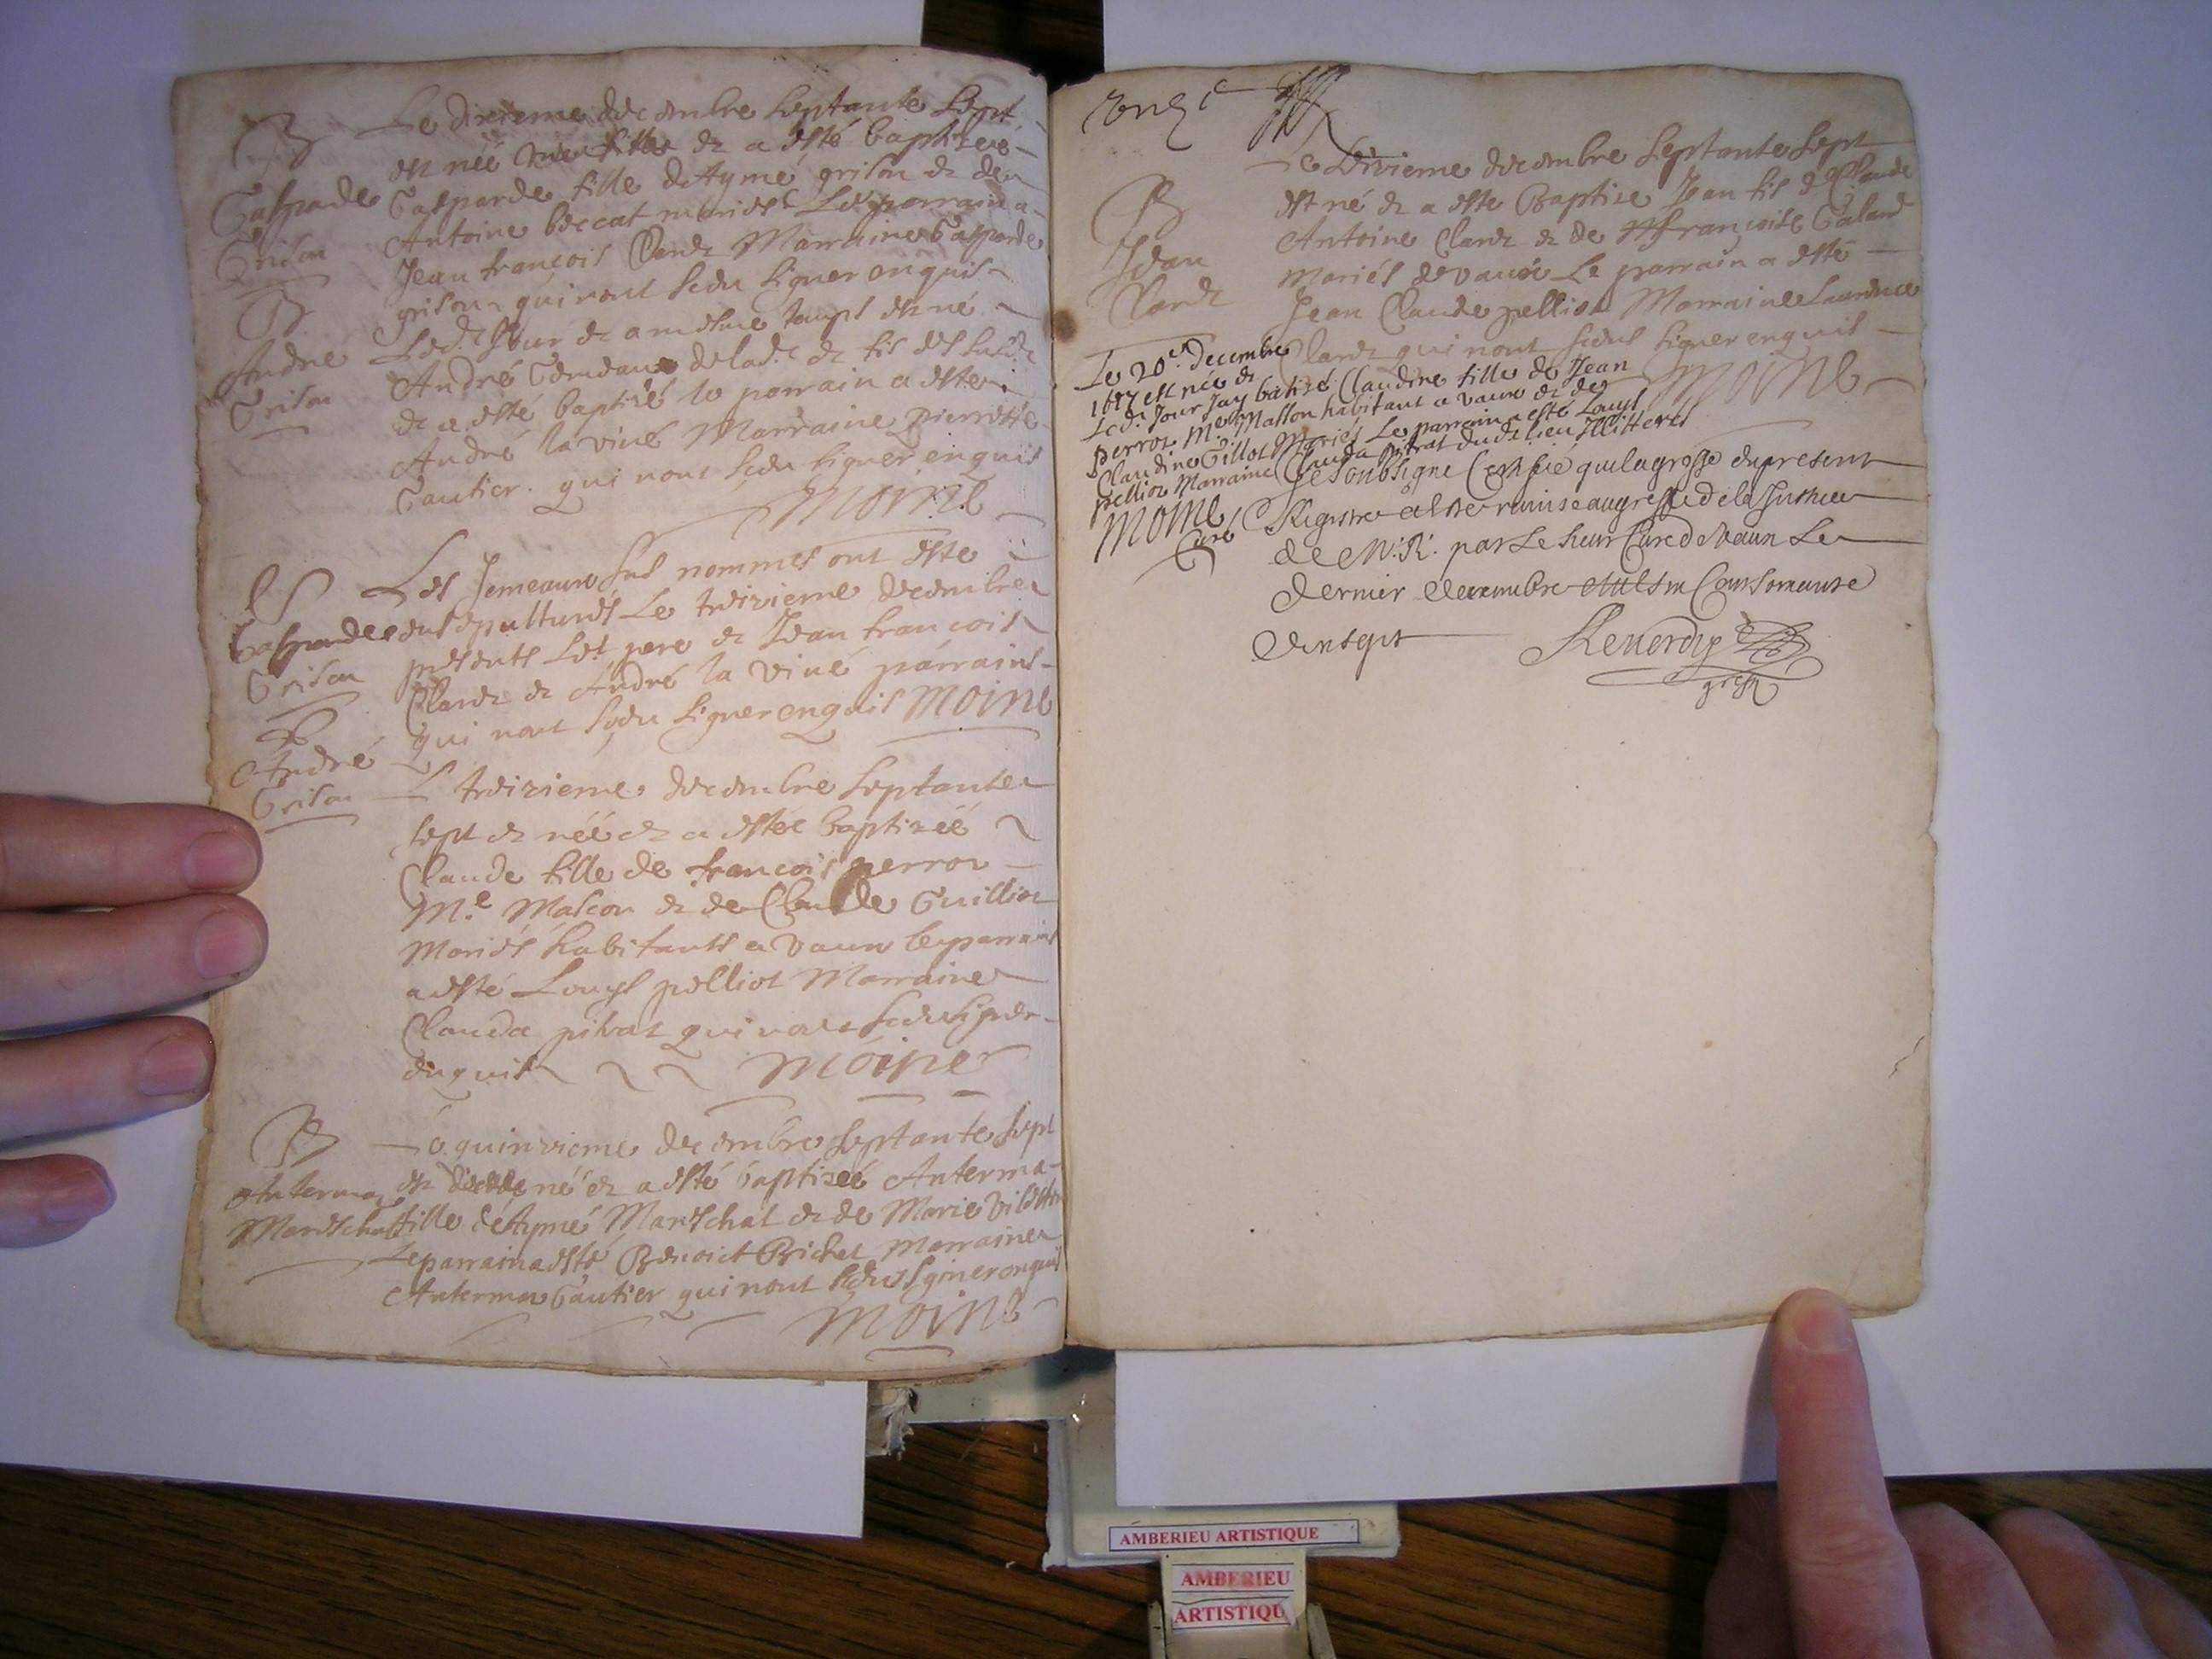 B
Le dixieme decembre septante sept
est néé et a esté baptizee
Gasparde
Gasparde fille de Aymé grison et de
Grison
Antoine beccat mariés Le parrain a
Jean francois Clerc Marraine Gasparde
grison qui nont sceu signer enquis
B
André
Grison
Led.t Jour et a mesme temps est né
André Gemeau de lad.e et fis des susd.
et a esté baptizé le parrain a esté
André la viné Marraine pierrette
Gautier. qui nont sceu signer enquis
Moine
S
Gasparde
Grison
Les Jemeaux sus nommes ont esté
ensepulturés Le treizieme decembre
presents Led.t pere et Jean francois
Clerc et André la viné parrains
qui nont sceu signer enquis Moine
André
Grison
L treizieme decembre septante
sept et néé et a estée baptizéé
Claude fille de francois perror
M.e Mascon et de Claude Guillior
Mariés habitants a vaux le parrain
a esté Louys pelliot Marraine
Clauda pitrat qui nont sceu signer
enquis Moine
B
Anterma
Mareschal
Le quinzieme decembre septante sept
est né et a esté baptizéé Anterma
fille de Aymé Mareschal et de Marie
Le parrain a esté Benoict Brichet Marraine
Anterma Gautier qui nont sceu signer enquis
Moine
onz.e
B
Jean
Clerc
Le Dixieme decembre septante sept
est né et a este Baptize Jean fis de Claude
Antoine Clerc et de françoise Galand
Mariés de vaux Le parrain a esté
Jean Claude pelliot Marraine Laurence
Clerc qui nont sceus signer enquis
Moine
Le 20.e Decembre
1677 est née et
Led. Jour Jay batisé Claudine fille de Jean
perror M.e Masson habitant a vaux et de
Claudine Gillot Mariés Le parrain a esté Louys
pelliot Marraine Clauda pitrat dud. lieu Illitterés
Moine
Curé
Je soubsigne Certiffie que la grosse du present
Registre a este remise au greffe de la Justice
de M. R. par Le sieur Curé de Vaux Le
dernier decembre mil six Cent soixante
dix sept
Reverdy
greff.
AMBERIEU ARTISTIQUE
AMBERIEU
ARTISTIQU